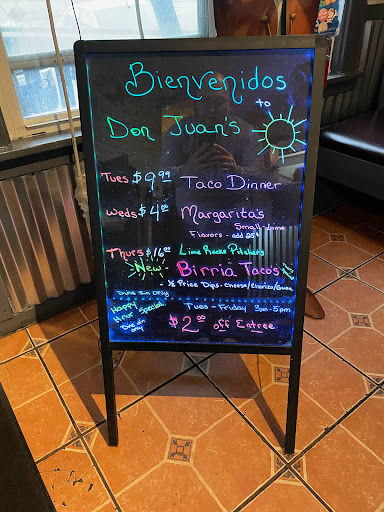 Bienvenidos
to
Don Juan's
Tues $9.99 Taco Dinner
Weds $4.00 Margaritas
Small-Lime
Flavors - add 25¢
Thurs $16.00 Lime Rocks Pitchers
New- Birria Tacos
- ½ Price Dips - Cheese/Chorizo/Guac
Dine In Only
Happy Hour Special Dine in only
Tues - Friday 3pm-5pm
$2.00 off Entree